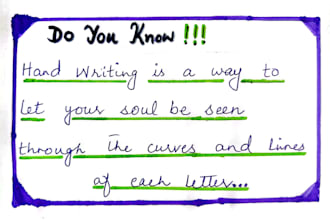 Do You Know !!!
Hand Writing is a way to
let your soul be seen
through the curves and Lines
of each letter...